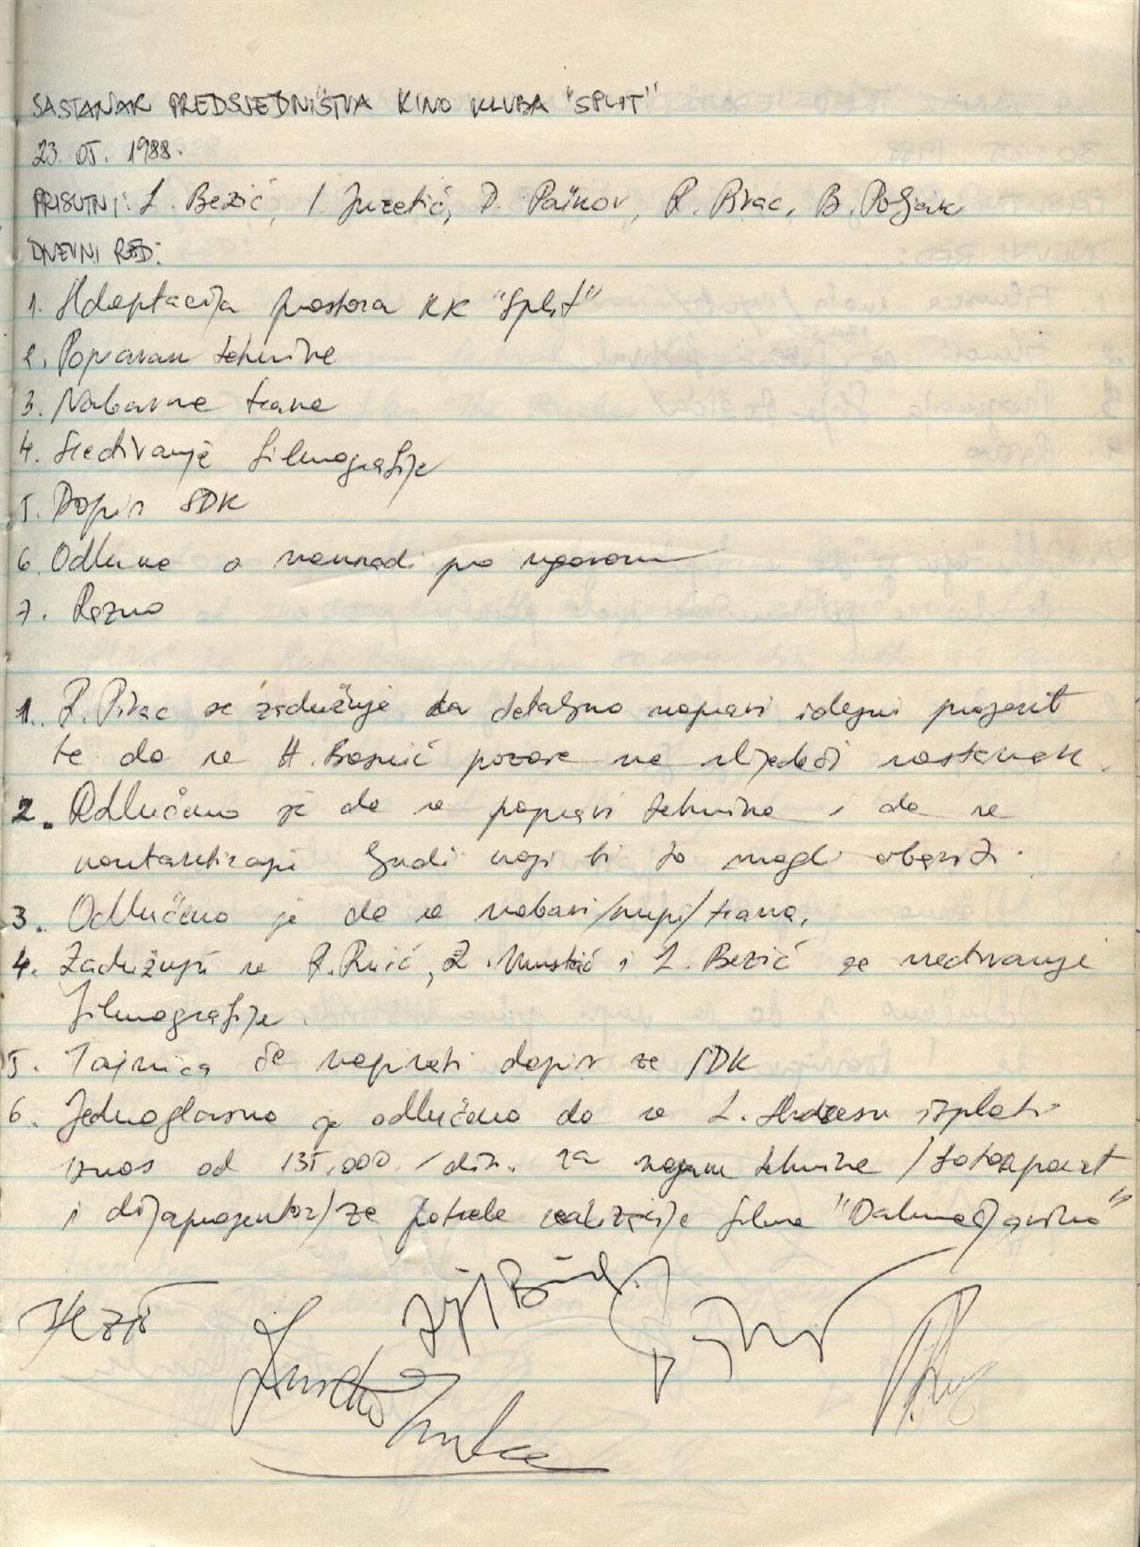 SASTANAK PREDSJEDNIŠTVA KINO KLUBA "SPLIT"
23. 05. 1988.
PRISUTNI: L. Bezić, I. Juretić, D. Paÿkov, R. Pivac, B. Poljak
DNEVNI RED:
1. Adaptacija prostora KK "Split"
2. Popravak tehnike
3. Nabavka traka
4. Sređivanje filmografije
5. Dopis SDK
6. Odluka o naknadi po ugovoru
7. Razno
1. R. Pivac se zadužuje da detaljno napravi idejni projekt
te da se H. Bosnić pozove na slijedeći sastanak.
2. Odlučeno je da se popravi tehnika i da se
kontaktiraju ljudi koji bi to mogli obaviti.
3. Odlučeno je da se nabavi/kupi/traka.
4. Zadužuju se i L. Bezić za sređivanje
filmografije.
5. Tajnica će napisati dopis za SDK
6. Jednoglasno je odlučeno da se L. isplati
iznos od 135.000. din. za najam tehnike /fotoaparat
i dijaprojektor/za potrebe realizacije filma "Dalmacijavino"